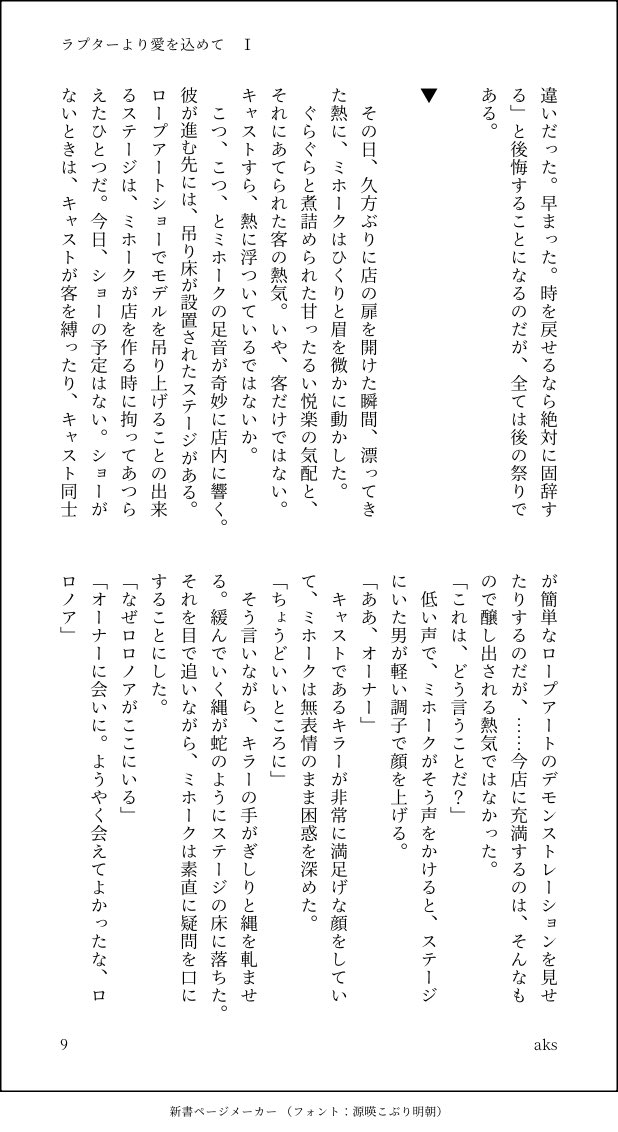 ラプターより愛を込めて　Ⅰ
違いだった。早まった。時を戻せるなら絶対に固辞す
る」と後悔することになるのだが、全ては後の祭りで
ある。
▼
　その日、久方ぶりに店の扉を開けた瞬間、漂ってき
た熱に、ミホークはひくりと眉を微かに動かした。
　ぐらぐらと煮詰められた甘ったるい悦楽の気配と、
それにあてられた客の熱気。いや、客だけではない。
キャストすら、熱に浮ついているではないか。
　こつ、こつ、とミホークの足音が奇妙に店内に響く。
彼が進む先には、吊り床が設置されたステージがある。
ロープアートショーでモデルを吊り上げることの出来
るステージは、ミホークが店を作る時に拘ってあつら
えたひとつだ。今日、ショーの予定はない。ショーが
ないときは、キャストが客を縛ったり、キャスト同士
が簡単なロープアートのデモンストレーションを見せ
たりするのだが、……今店に充満するのは、そんなも
ので醸し出される熱気ではなかった。
「これは、どう言うことだ？」
　低い声で、ミホークがそう声をかけると、ステージ
にいた男が軽い調子で顔を上げる。
「ああ、オーナー」
　キャストであるキラーが非常に満足げな顔をしてい
て、ミホークは無表情のまま困惑を深めた。
「ちょうどいいところに」
　そう言いながら、キラーの手がぎしりと縄を軋ませ
る。緩んでいく縄が蛇のようにステージの床に落ちた。
それを目で追いながら、ミホークは素直に疑問を口に
することにした。
「なぜロロノアがここにいる」
「オーナーに会いに。ようやく会えてよかったな、ロ
ロノア」
9
aks
新書ページメーカー（フォント：源暎こぶり明朝）